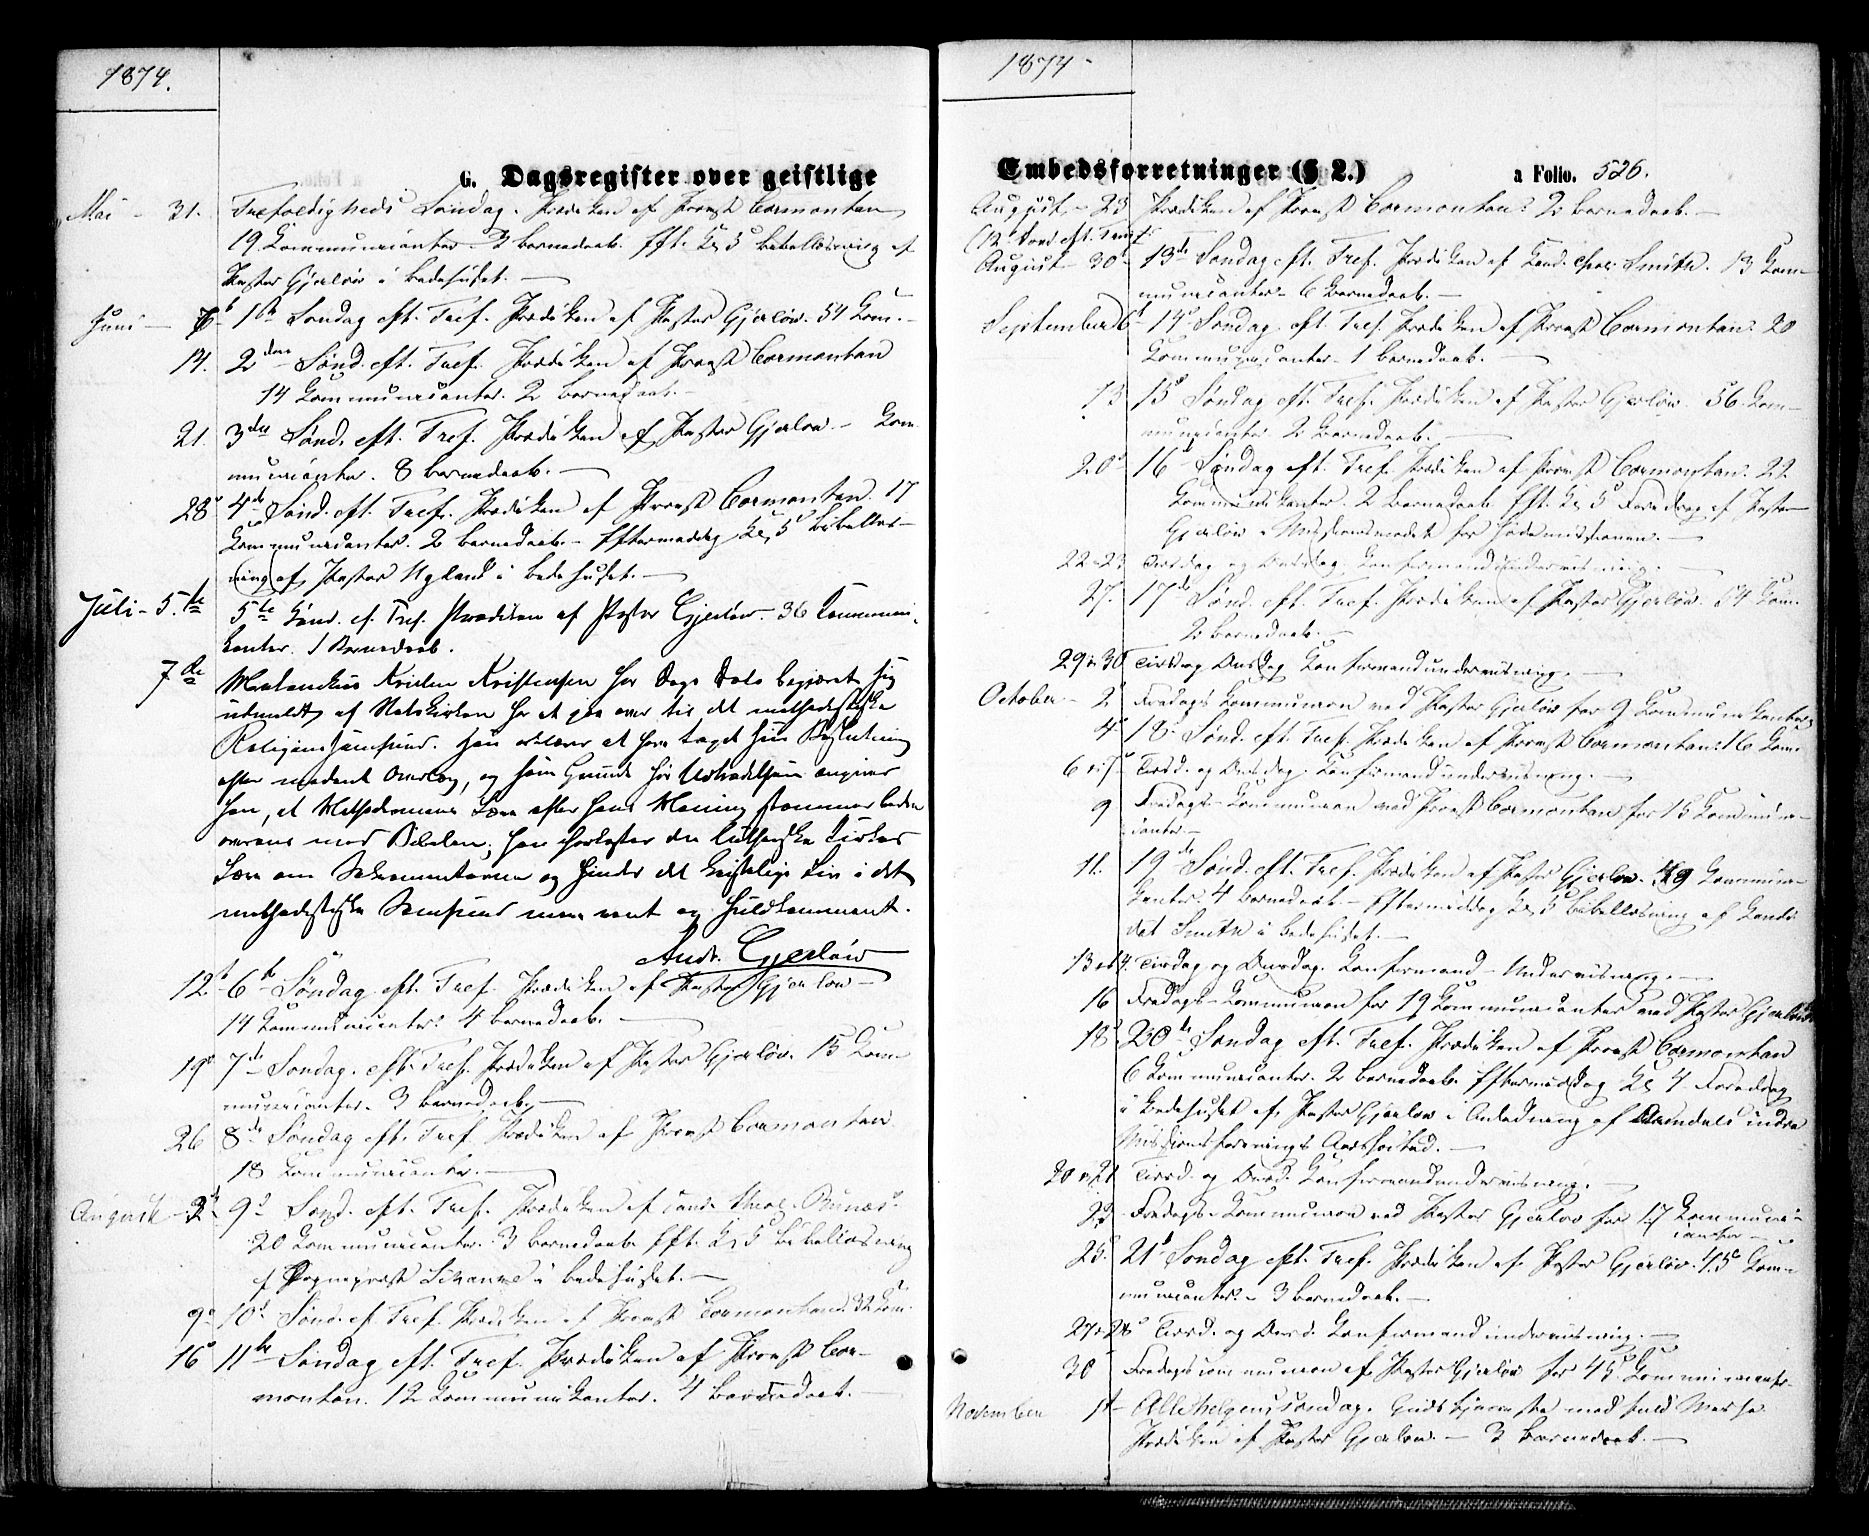 1874.
G. Dagsregister over geistlige
Mai - 31. Trefoldigheds Søndag. Prædiken af Provst Cormontan
19 Kommunicanter. 3 Barnedaab. Eft. Kl. 5 Bibellæsning af
Pastor Gjerløw i Bedehuset. —
Juni — 7 1ste Søndag eft. Tref. Prædiken af Pastor Gjerløw. 54 Kom. —
14. 2den Sønd. eft. Tref. Prædiken af Provst Cormontan
14 Kommunicanter. 2 Barnedaab. —
21. 3die Sønd. eft. Tref. Prædiken af Pastor Gjerløw. — Kom
municanter. 8 Barnedaab. —
28 4de Sønd. eft. Tref. Prædiken af Provst Cormontan. 17
Kommunicanter. 2 Barnedaab. — Eftermiddag Kl. 5 Bibellæs-
ning af Pastor Nyland i Bedehuset. —
Juli - 5.te 5te Sønd. e. Tref. Prædiken af Pastor Gjerløw. 36 Communi-
kanter. 1 Barnedaab.
7de Kristen Kristensen har Dags Dato begjæret sig
udmeldt af Statskirken for at gaa over til det methodistiske
Religionssamfund. Han erklærer at have taget sin Beslutning
efter modent Overlæg, og som Grunde for Udtrædelsen angiver
han, at Methodismens Lære efter hans Mening stemmer bedre
overens med Bibelen; han forkaster den lutherske Kirkes
Lære om Sakramenterne og finder det kristelige Liv i det
methodistiske Samfund mere rent og fuldkomment.
Andr. Gjerløw
12t 6te Søndag eft. Tref. Prædiken af Pastor Gjerløw —
14 Kommunicanter. 4 Barnedaab. —
19 7de Søndag. eft. Tref. Prædiken af Pastor Gjerløw. 15 Kom-
municanter. 3 Barnedaab. —
26 8de Søndag eft. Tref. Prædiken af Provst Cormontan
18 Kommunicanter. —
August - 2 9de Sønd. eft. Tref. Prædiken af Cand.
20 Kommunicanter. 3 Barnedaab. Eft. Kl. 5 Bibellæsning
af Sogneprest i Bedehuset. —
9 10de Sønd. ef. Tref. Prædiken af Provst Cormontan. 32 Kom.
16 11te Søndag eft. Tref. Prædiken af Provst Cor-
montan. 12 Kommunikanter. 4 Barnedaab. —
1874
Embedsforretninger (§ 2.) a Folio. 526.
August - 23 Prædiken af Provst Cormontan. 2 Barnedaab. —
(12 Sønd. eft. Tref.
August 30 13de Søndag eft. Tref. Prædiken af Cand. Smith. 13 Kom-
municanter. 6 Barnedaab. —
September 6t 14de Søndag eft. Tref. Prædiken af Provst Cormontan. 20
Kommunicanter. 1 Barnedaab. —
13 15 Søndag eft. Tref. Prædiken af Pastor Gjerløw. 56 Kom-
municanter 2 Barnedaab. —
20 16 Søndag eft. Tref. Prædiken af Provst Cormontan. 22
Kommunikanter. 2 Barnedaab. Eft. Kl. 5 Foredrag af Pastor
Gjerløw i Missionsmødet for Jødemissionen. —
22 - 23 Tirsdag og Onsdag Konfirmandundervisning. —
27. 17de Sønd. eft. Tref. Prædiken af Pastor Gjerløw. 54 Kom.
2 Barnedaab. —
29 & 30 Tirsdag Onsdag Konfirmandundervisning. —
October - 2 Fredags Kommunion ved Pastor Gjerløw for 9 Kommunikanter
4 18. Sønd. eft. Tref. Prædiken af Provst Cormontan. 16 Kom.
6 & 7 Tirsd. og Onsdag. Konfirmandundervisning. —
9 Fredags-Kommunion ved Provst Cormontan for 15 Kommuni-
canter. —
11. 19de Sønd. eft. Tref. Prædiken af Pastor Gjerløw. 49 Kommuni-
kanter. 4 Barnedaab. — Eftermiddag Kl. 5 Bibellæsning af Kandi
dat Smith i Bedehuset. —
13 & 14. Tirsdag og Onsdag. Konfirmand-Undervisning. —
16 Fredags-Kommunion for 19 Kommunicanter ved Pastor Gjerløw
18 20de Søndag eft. Tref. Prædiken af Provst Cormontan
6 Kommunicanter. 2 Barnedaab. Eftermiddag Kl. 4 Foredrag
i Bedehuset af Pastor Gjerløw i Anledning af Arendals indre
Missionsforenings Aarshøitid. —
20 & 21 Tirsd. og Onsd. Konfirmandundervisning. —
23 Fredags-Kommunion ved Pastor Gjerløw for 17 Kommuni-
canter —
25. 21 Søndag eft. Tref. Prædiken af Pastor Gjerløw. 45 Kom-
municanter. — 3 Barnedaab. —
27 & 28 Tirsd. og Onsd. Konfirmandundervisning. —
30 Fredagscommunion af Pastor Gjerløw for 45 Kommunicanter.
November 1t Allehelgenssøndag. Gudstjeneste med fuld Messe
Prædiken af Pastor Gjerløw. — 3 Barnedaab. —